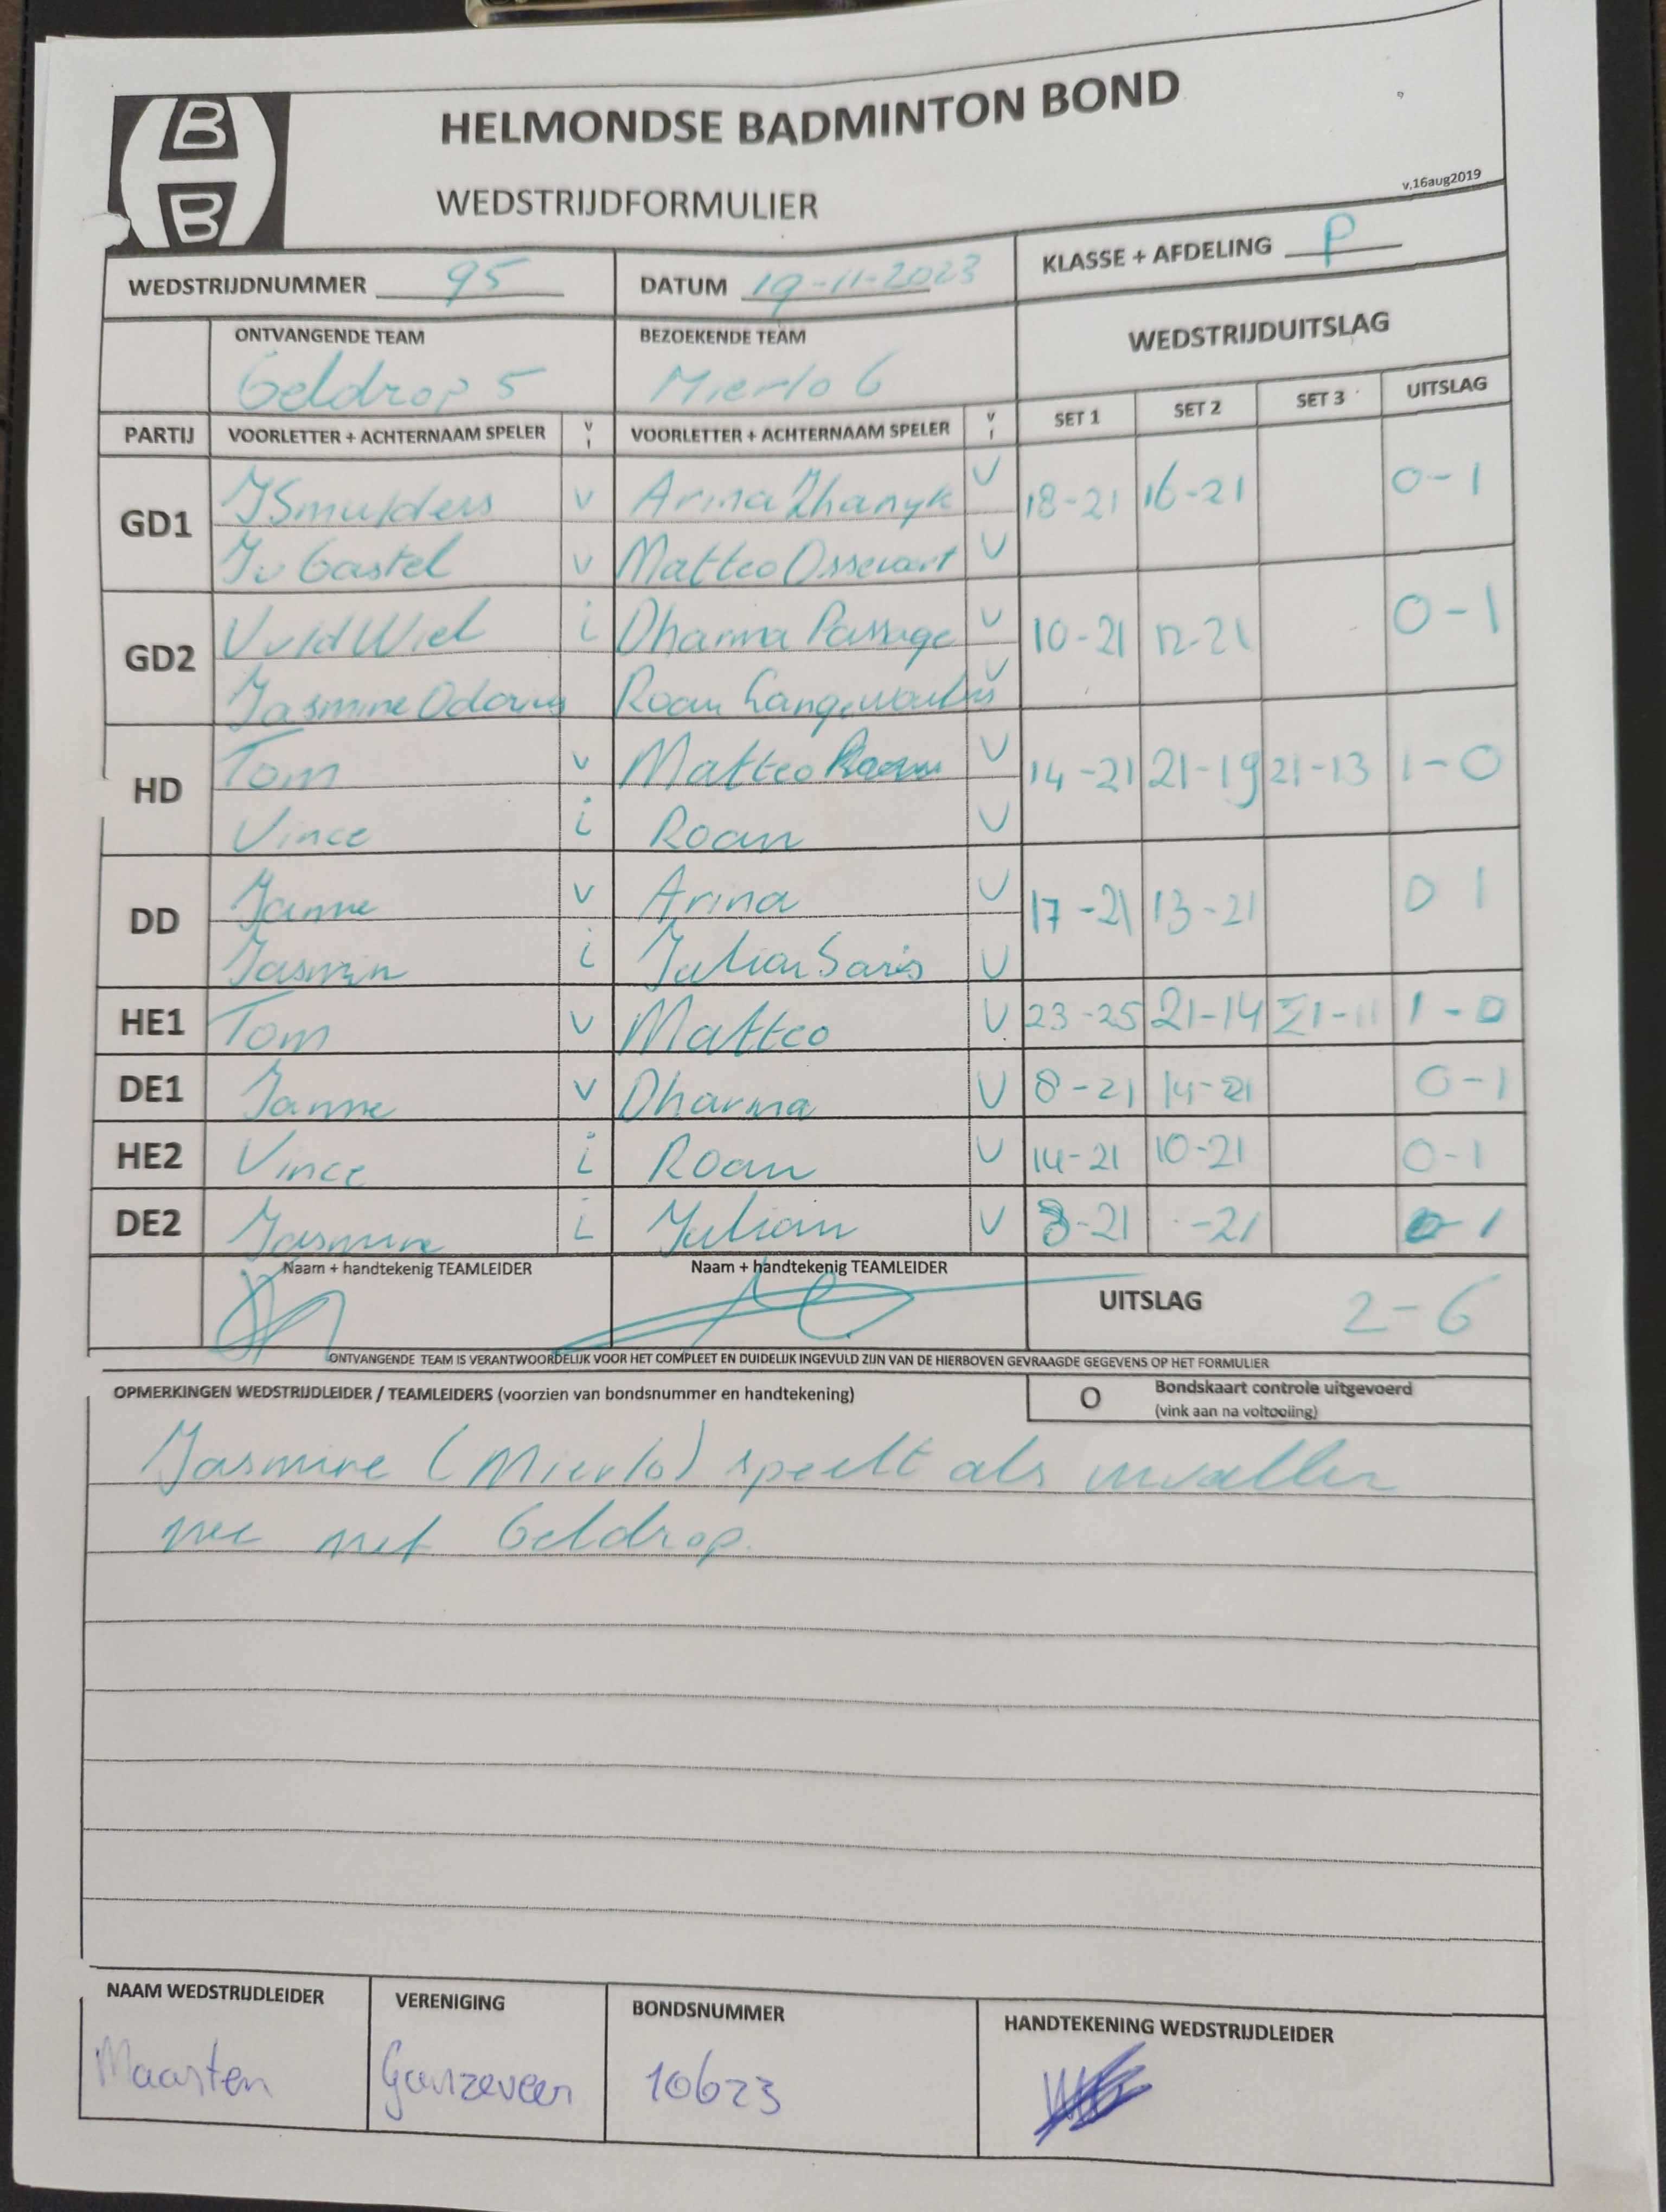 B
B
HELMONDSE BADMINTON BOND
WEDSTRIJDFORMULIER
v.16aug2019
WEDSTRIJDNUMMER 95 DATUM 19-11-2023 KLASSE + AFDELING P
ONTVANGENDE TEAM BEZOEKENDE TEAM WEDSTRIJDUITSLAG
Geldrop 5 Mierlo 6
PARTIJ VOORLETTER + ACHTERNAAM SPELER V I VOORLETTER + ACHTERNAAM SPELER V I SET 1 SET 2 SET 3 UITSLAG
GD1 JSmulders v Arina Zhanyk V 18-21 16-21 0-1
Jv Gastel v Matteo V
GD2 VvldWiel i Dharma Passage V 10-21 12-21 0-1
Jasmine Roan V
HD Tom v Matteo V 14-21 21-19 21-13 1-0
Vince i Roan V
DD Janne v Arina V 17-21 13-21 0 1
Jasmin i Julian Saris V
HE1 Tom v Matteo V 23-25 21-14 21-11 1-0
DE1 Janne v Dharma V 8-21 14-21 0-1
HE2 Vince i Roan V 14-21 10-21 0-1
DE2 Jasmine i Julian V 8-21 -21 0-1
Naam + handtekenig TEAMLEIDER Naam + handtekenig TEAMLEIDER UITSLAG 2-6
ONTVANGENDE TEAM IS VERANTWOORDELIJK VOOR HET COMPLEET EN DUIDELIJK INGEVULD ZIJN VAN DE HIERBOVEN GEVRAAGDE GEGEVENS OP HET FORMULIER
OPMERKINGEN WEDSTRIJDLEIDER / TEAMLEIDERS (voorzien van bondsnummer en handtekening) O Bondskaart controle uitgevoerd
(vink aan na voltooiing)
Jasmine (Mierlo) speelt als invaller
mee met Geldrop.
NAAM WEDSTRIJDLEIDER VERENIGING BONDSNUMMER HANDTEKENING WEDSTRIJDLEIDER
Maarten Ganzeveer 10623